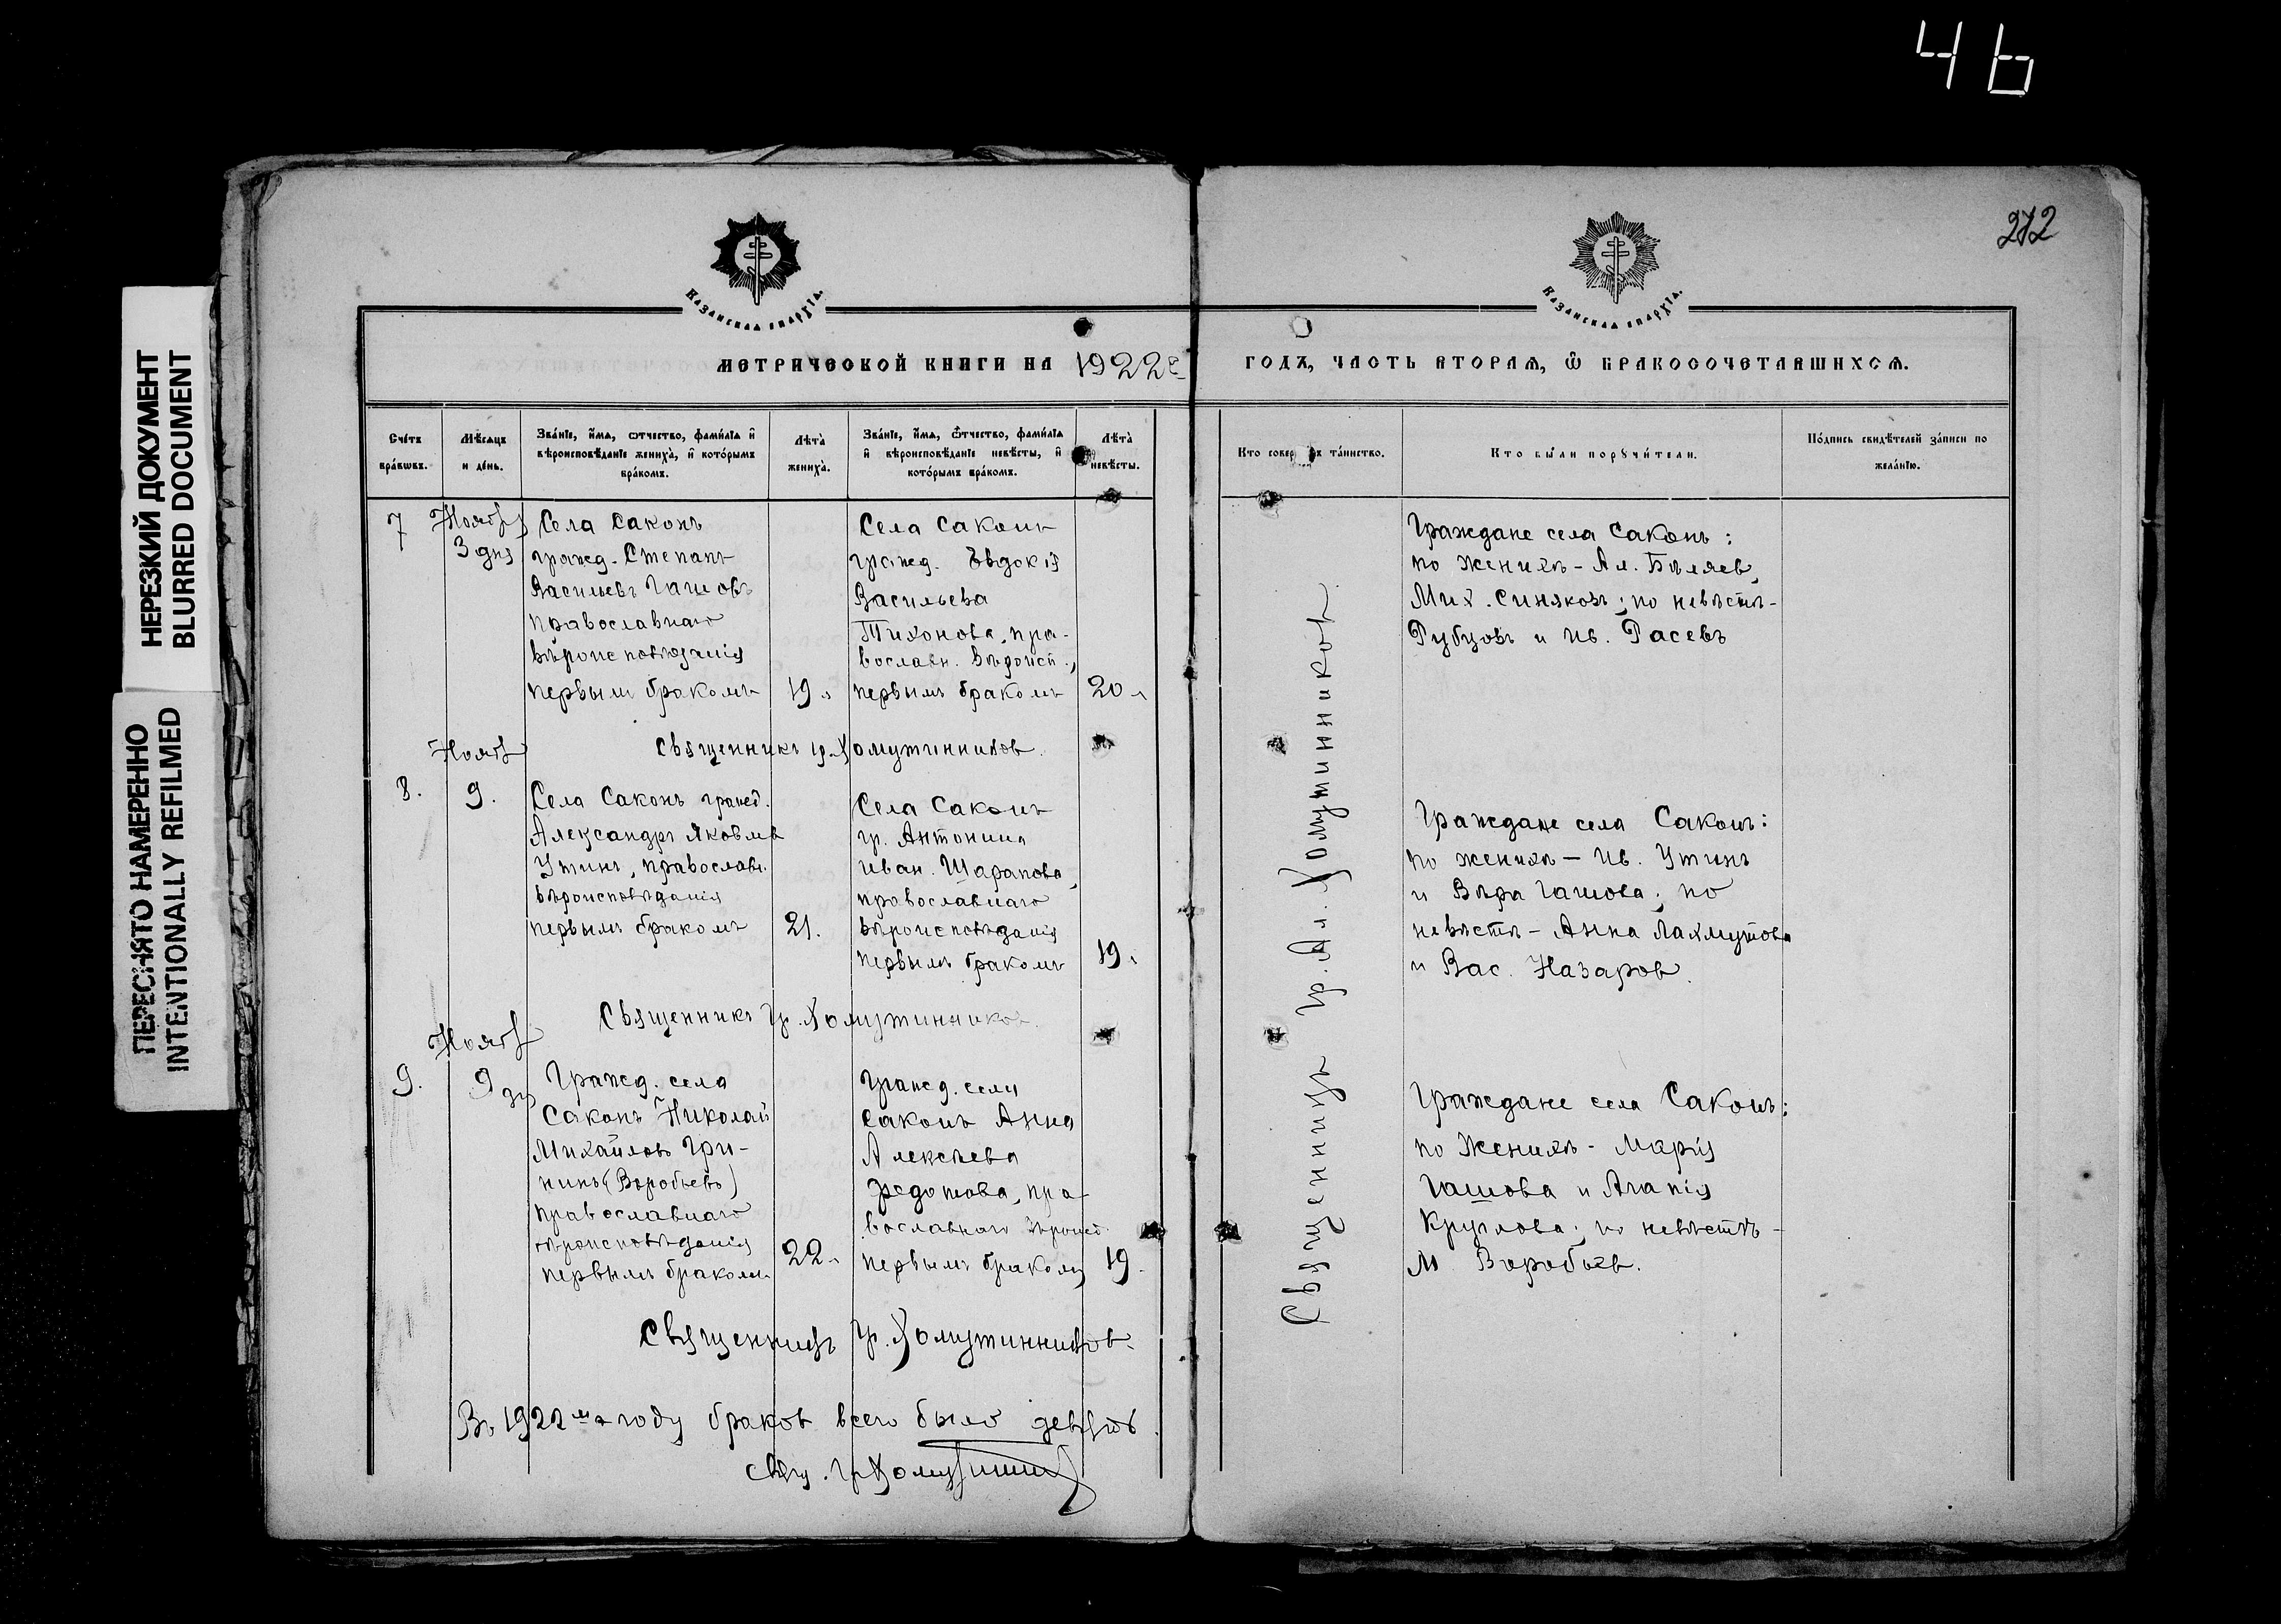 46
НЕРЕЗКИЙ ДОКУМЕНТ
BLURRED DOCUMENT
ПЕРЕСНЯТО НАМЕРЕННО
INTENTIONALLY REFILMED
272
Казанская епархїа.
Казанская епархїа.
МЕТРИЧЕСКОЙ КНИГИ НА 1922 г.
ГОДЪ, ЧАСТЬ ВТОРАѦ, Ѿ БРАКОСОЧЕТАВШИХСѦ.
Сче́тъ бра́кѡвъ.
Мѣ́сѧцъ и де́нь.
Зва́нїе, и́мѧ, ѻ́тчество, фами́лїа и вѣроисповѣ́данїе жениха̀, и кото́рымъ бра́комъ.
Лѣта̀ жениха̀.
Зва́нїе, и́мѧ, ѻ́тчество, фами́лїа и вѣроисповѣ́данїе невѣ́сты, и кото́рымъ бра́комъ.
Лѣта̀ невѣ́сты.
Кто̀ соверъ та́инство.
Кто̀ бы́ли порꙋчи́тели.
По́дпись свидѣ́телей за́писи по жела́нїю.
7
Нояб
3 дня
Села Саконъ
гражд. Степанъ
Васильевъ Гашовъ
православнаго
вѣроисповѣданія
первымъ бракомъ
19.
Села Саконъ
гражд. Евдокія
Васильева
Тихонова, пра-
вославн. вѣроисп.,
первымъ бракомъ
20
Граждане села Саконъ:
по женихѣ - Ал. Бѣляев,
Мих. Синяковъ; по невѣстѣ -
Рубцовъ и Ив. Расевъ
Священникъ гр. Хомутинников.
Нояб
8.
9.
Села Саконъ гражд.
Александръ Яковлев
Утинъ, православн.
вѣроисповѣданія
первымъ бракомъ
21.
Села Саконъ
гр. Антонина
Иван. Шарапова,
православнаго
вѣроисповѣданія
первымъ бракомъ
19.
Граждане села Саконъ:
по женихѣ — Ив. Утинъ
и Вѣра Гашова; по
невѣстѣ - Анна Лахмутова
и Вас. Назаров.
Священникъ Гр. Хомутинников.
Нояб
9.
9 дн
Гражд. села
Саконъ Николай
Михайловъ Гри-
нинъ (Воробьевъ)
православнаго
вѣроисповѣданія
первымъ бракомъ
22.
Гражд. села
Саконъ Анна
Алексѣева
Федотова, пра-
вославнаго вѣроисп.
первымъ бракомъ
19.
Граждане села Саконъ:
по женихѣ - Марія
Гашова и Агапія
Круглова; по невѣстѣ -
М. Воробьев.
Священникъ Гр. Хомутинников.
Священникъ Гр. Ал. Хомутинников
Въ 1922 мъ году браков всего было девять.
свящ. Гр. Хомутинник